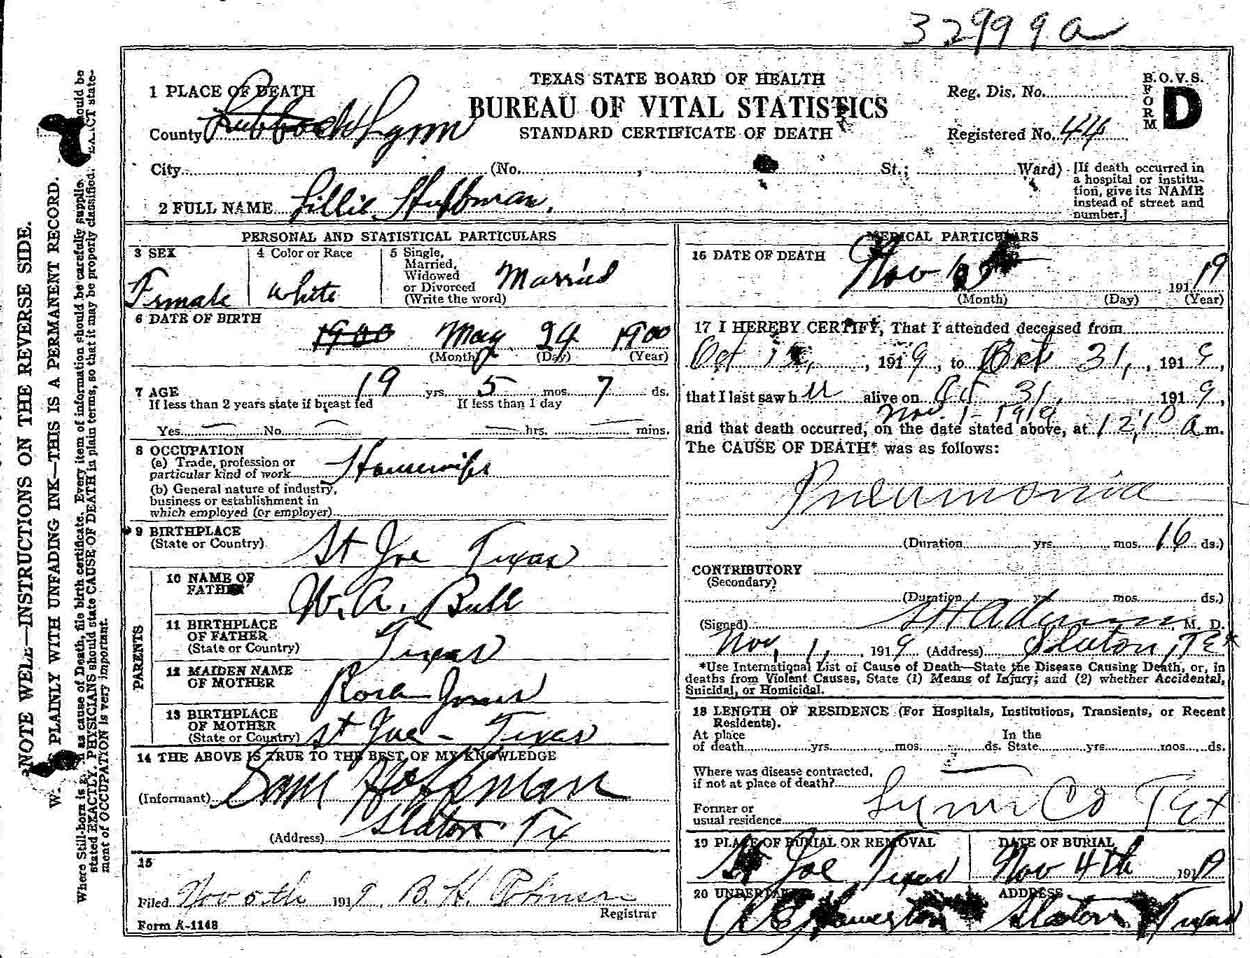 32999a
TEXAS STATE BOARD OF HEALTH
BUREAU OF VITAL STATISTICS
STANDARD CERTIFICATE OF DEATH
B.O.V.S.
FORM D
Reg. Dis. No.
Registered No. 44
1 PLACE OF DEATH
County Lubbock Lynn
City (No. , St.; Ward)
[If death occurred in
a hospital or institu-
tion, give its NAME
instead of street and
number.]
2 FULL NAME Lillie Huffman,
PERSONAL AND STATISTICAL PARTICULARS
3 SEX
Female
4 Color or Race
White
5 Single,
Married,
Widowed
or Divorced
(Write the word)
Married
6 DATE OF BIRTH
1900 May 24 1900
(Month) (Day) (Year)
7 AGE 19 yrs. 5 mos. 7 ds.
If less than 2 years state if breast fed If less than 1 day
Yes No hrs. mins.
8 OCCUPATION
(a) Trade, profession or
particular kind of work Housewife
(b) General nature of industry,
business or establishment in
which employed (or employer)
9 BIRTHPLACE
(State or Country) St Joe Texas
PARENTS
10 NAME OF
FATHER W. A. Bull
11 BIRTHPLACE
OF FATHER
(State or Country) Texas
12 MAIDEN NAME
OF MOTHER Rosa Jones
13 BIRTHPLACE
OF MOTHER
(State or Country) St Joe - Texas
14 THE ABOVE IS TRUE TO THE BEST OF MY KNOWLEDGE
(Informant) Sam Hoffman
(Address) Slaton Tx
15
Filed Nov 5th 1919 B. H. Registrar
Form A-1148
MEDICAL PARTICULARS
16 DATE OF DEATH
Nov 1919
(Month) (Day) (Year)
17 I HEREBY CERTIFY, That I attended deceased from
Oct 15, 1919, to Oct 31, 1919,
that I last saw her alive on Oct 31, 1919,
Nov. 1 - 1919
and that death occurred, on the date stated above, at 12:10 a m.
The CAUSE OF DEATH* was as follows:
Pneumonia
(Duration yrs. mos. 16 ds.)
CONTRIBUTORY
(Secondary)
(Duration yrs. mos. ds.)
(Signed) M. D.
Nov, 1, 1919 (Address) Slaton, Tex
*Use International List of Cause of Death—State the Disease Causing Death, or, in
deaths from Violent Causes, State (1) Means of Injury; and (2) whether Accidental,
Suicidal, or Homicidal.
18 LENGTH OF RESIDENCE (For Hospitals, Institutions, Transients, or Recent
Residents).
At place In the
of death yrs. mos. ds. State yrs. mos. ds.
Where was disease contracted,
if not at place of death?
Former or
usual residence Lynn Co Tex
19 PLACE OF BURIAL OR REMOVAL
St Joe Texas
DATE OF BURIAL
Nov 4th 1919
20 UNDERTAKER
ADDRESS
Slaton Texas
NOTE WELL—INSTRUCTIONS ON THE REVERSE SIDE.
W. PLAINLY WITH UNFADING INK—THIS IS A PERMANENT RECORD.
Where Still-born is as cause of Death, file birth certificate. Every item of information should be carefully supplie. should be
stated EXACTLY. PHYSICIANS should state CAUSE OF DEATH in plain terms, so that it may be properly classified. EXACT state-
ment of OCCUPATION is very important.